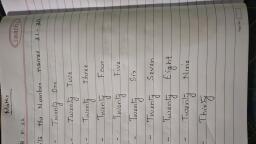 the Number names 21-30
- Twenty One
- Twenty Two
- Twenty three
- Twenty Four
- Twenty Five
- Twenty Six
- Twenty Seven
- Twenty Eight
- Twenty Nine
- Thirty